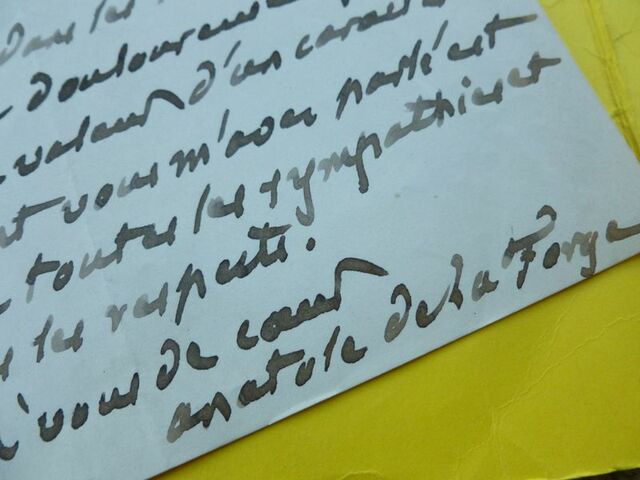 dans les
douloureuse
valeur d'un caractè
nt vous m'avez parlé est
toutes les sympathies et
les respects.
à vous de cœur
anatole de La Forge